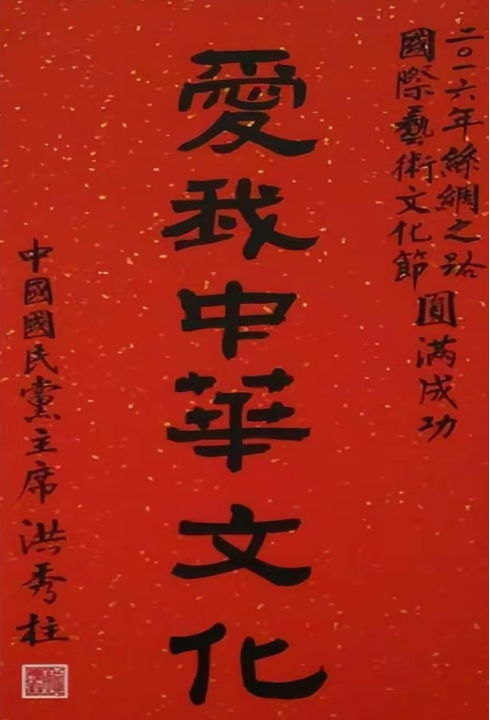 二〇一六年絲綢之路
國際藝術文化節
圓滿成功
愛我中華文化
中國國民黨主席 洪秀柱